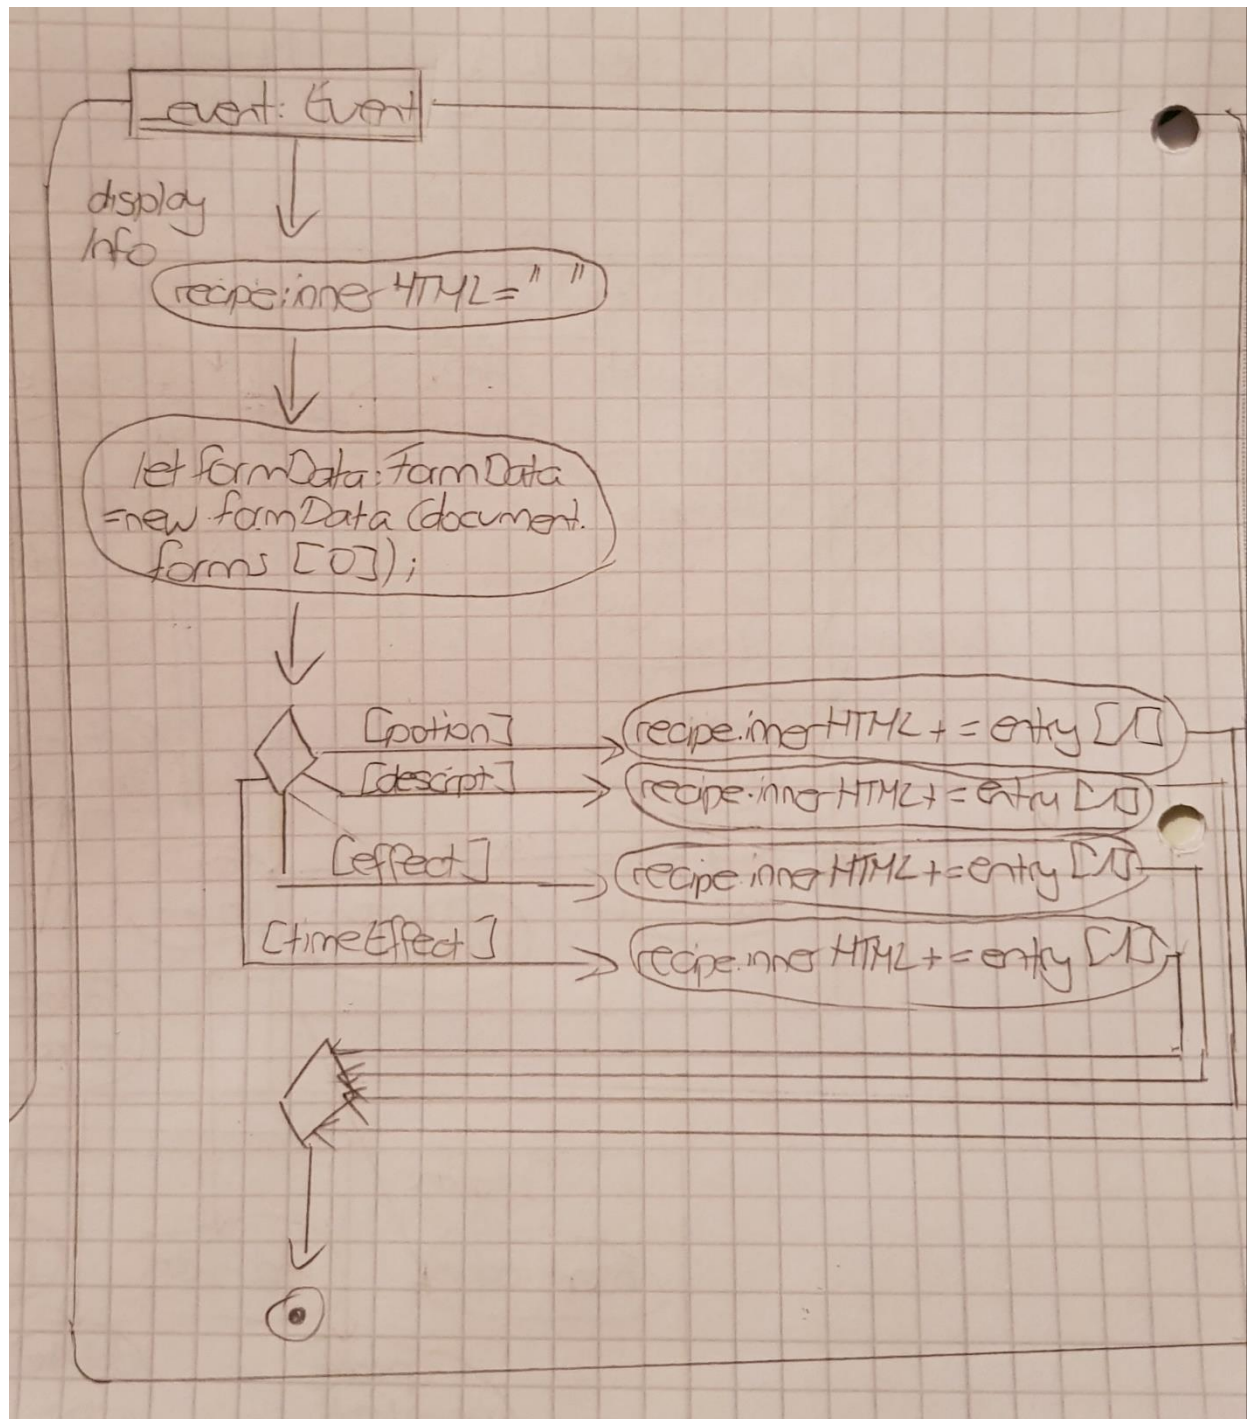 _event: Event
display
info
recipe.innerHTML=" "
let formData: FormData
=new formData (document.
forms [0]);
[potion]
recipe.innerHTML += entry [1]
[descript]
recipe.innerHTML += entry [1]
[effect]
recipe.innerHTML += entry [1]
[timeEffect]
recipe.innerHTML += entry [1]